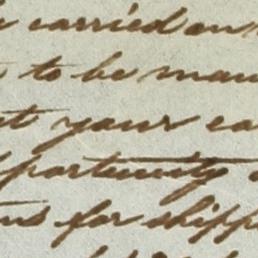 carried on
to be man
your ea
portunity
for shipp